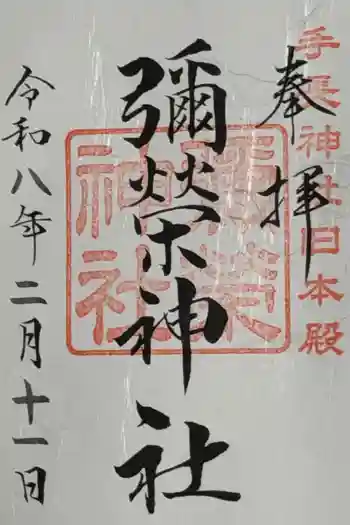 奉拝
手長神社旧本殿
彌榮神社
彌榮神社
令和八年二月十一日